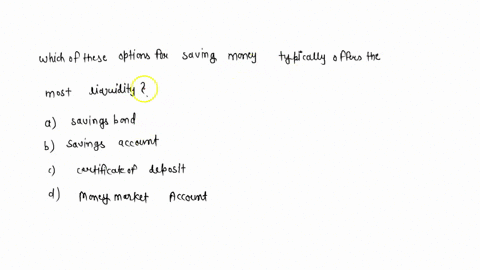 which of these options for saving money typically offers the
most liquidity?
a) savings bond
b) savings account
c) certificate of deposit
d) Money market Account